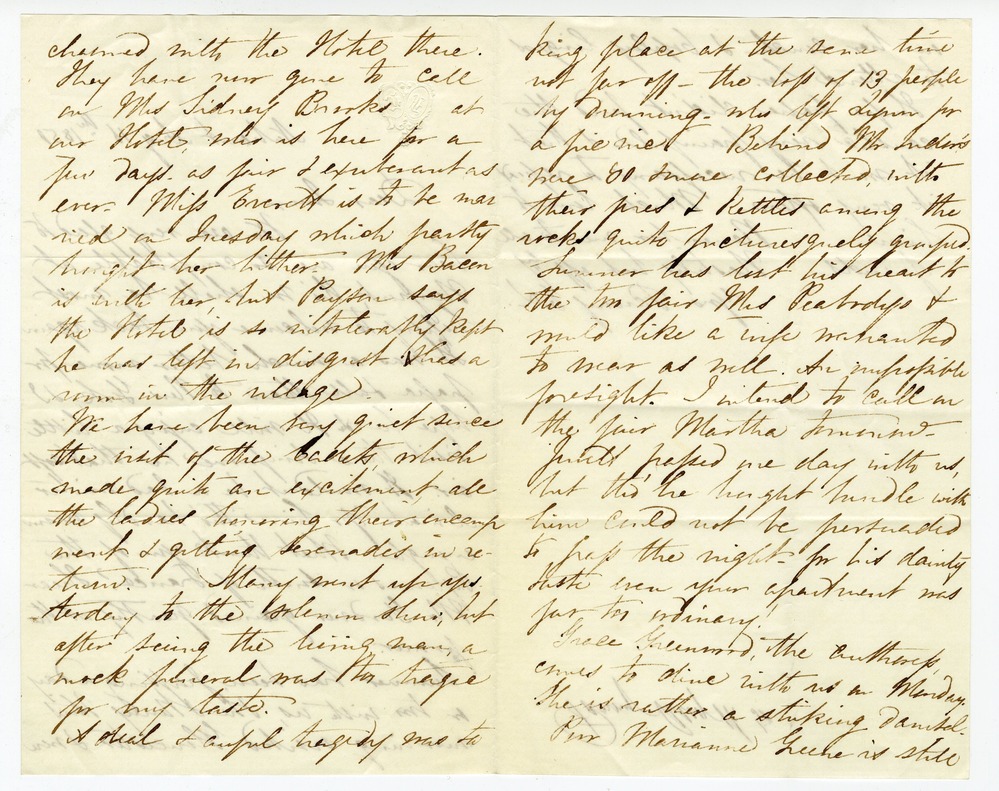 charmed with the Hotel there.
They have now gone to call
on Mrs Sidney Brooks at
our Hotel, who is here for a
few days. as fair & exuberant as
ever. Miss Everett is to be mar
ried on Tuesday which partly
brought her hither. Mrs Bacon
is with her, but Payson says
the Hotel is so intolerably kept
he has left in disgust & has a
room in the village.
We have been very quiet since
the visit of the Cadets, which
made quite an excitement all
the ladies honoring their encamp
ment & getting serenades in re-
turn. Many went up yes
terday to the solemn show, but
after seeing the living man, a
mock funeral was too tragic
for my taste.
A deal & awful tragedy was ta
king place at the same time
not far off - the loss of 13 people
by drowning - who left Lynn for
a pic nic. Behind Mr
were 80 more collected, with
their fires & Kettles among the
rocks quite picturesquely grouped.
Sumner has lost his heart to
the two fair Mrs Peabodys &
would like a wife warranted
to wear as well. An impossible
foresight. I intend to call on
the fair Martha tomorrow -
passed one day with us,
but tho' he brought bundle with
him could not be persuaded
to pass the night - for his dainty
taste even your apartment was
far too ordinary!
Grace Greenwood, the authoress,
comes to dine with us on Monday.
She is rather a striking damsel.
Poor Marianne Greene is still